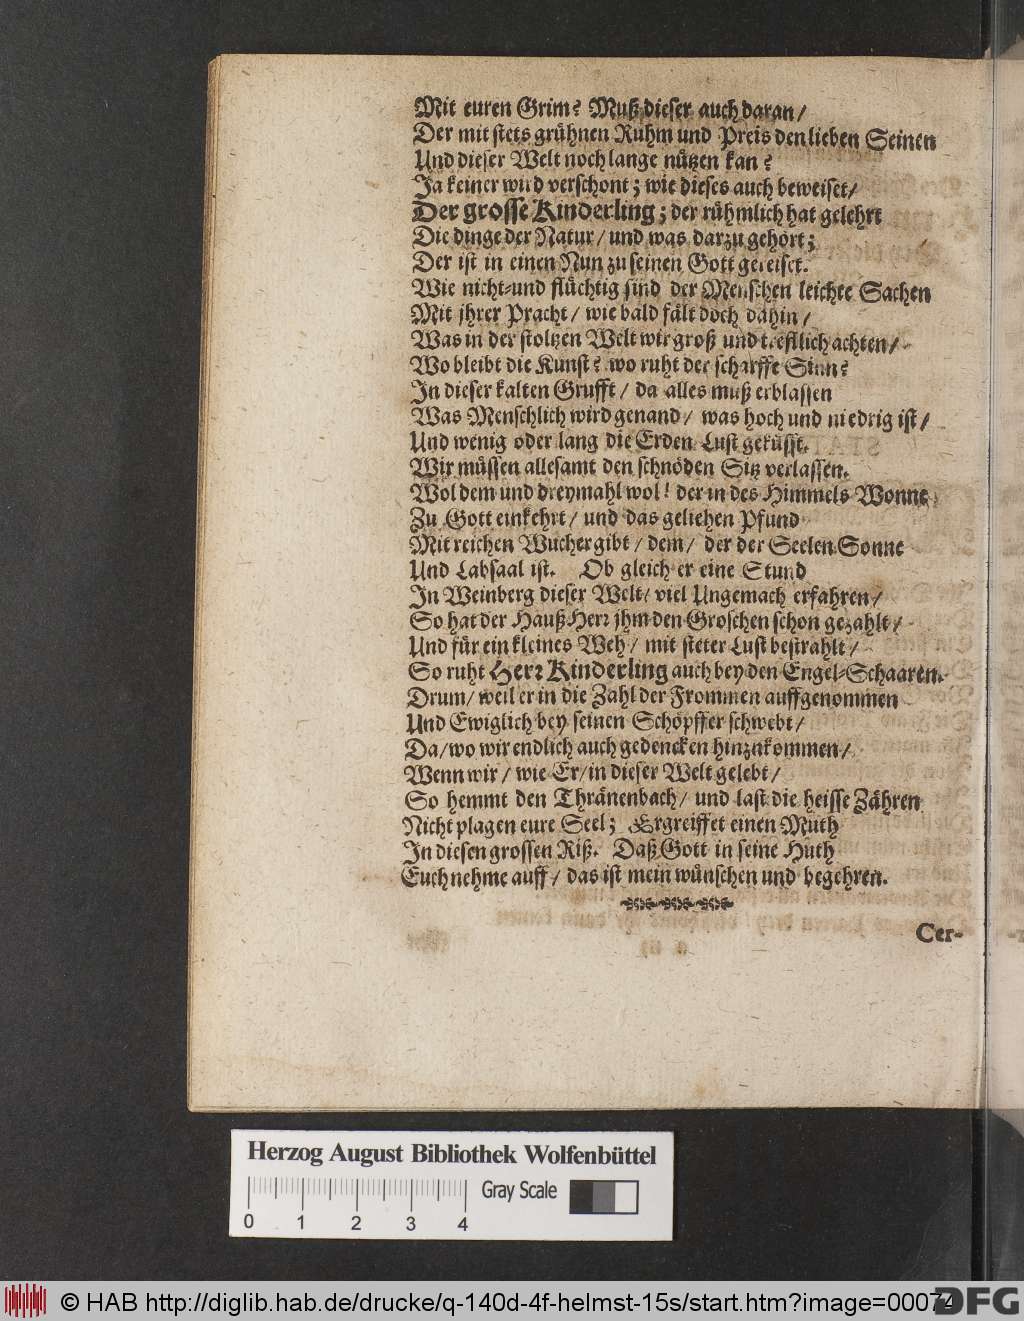 Mit euren Grim? Muß dieser auch daran/
Der mit stets grühnen Ruhm und Preis den lieben Seinen
Und dieser Welt noch lange nützen kan?
Ja keiner wird verschont; wie dieses auch beweiset/
Der grosse Kinderling; der rühmlich hat gelehrt
Die dinge der Natur/ und was darzu gehört;
Der ist in einen Nun zu seinen Gott gereiset.
Wie nicht-und flüchtig sind der Menschen leichte Sachen
Mit jhrer Pracht/ wie bald fält doch dahin/
Was in der stoltzen Welt wir groß und trefflich achten/
Wo bleibt die Kunst? wo ruht der scharffe Sinn?
In dieser kalten Grufft/ da alles muß erblassen
Was Menschlich wird genand/ was hoch und niedrig ist/
Und wenig oder lang die Erden Lust geküsst.
Wir müssen allesamt den schnöden Sitz verlassen.
Wol dem und dreymahl wol! der in des Himmels Wonne
Zu Gott einkehrt/ und das geliehen Pfund
Mit reichen Wucher gibt/ dem/ der der Seelen Sonne
Und Labsaal ist. Ob gleich er eine Stund
In Weinberg dieser Welt/ viel Ungemach erfahren/
So hat der Hauß Herr jhm den Groschen schon gezahlt/
Und für ein kleines Weh/ mit steter Lust bestrahlt/
So ruht Herr Kinderling auch bey den Engel-Schaaren.
Drum/ weil er in die Zahl der Frommen auffgenommen
Und Ewiglich bey seinen Schöpffer schwebt/
Da/ wo wir endlich auch gedencken hinzukommen/
Wenn wir/ wie Er/ in dieser Welt gelebt/
So hemmt den Thränenbach/ und last die heisse Zähren
Nicht plagen eure Seel; Ergreiffet einen Muth
In diesen grossen Riß. Daß Gott in seine Huth
Euch nehme auff/ das ist mein wünschen und begehren.
Cer-
Herzog August Bibliothek Wolfenbüttel
0 1 2 3 4 Gray Scale
© HAB http://diglib.hab.de/drucke/q-140d-4f-helmst-15s/start.htm?image=00074
DFG